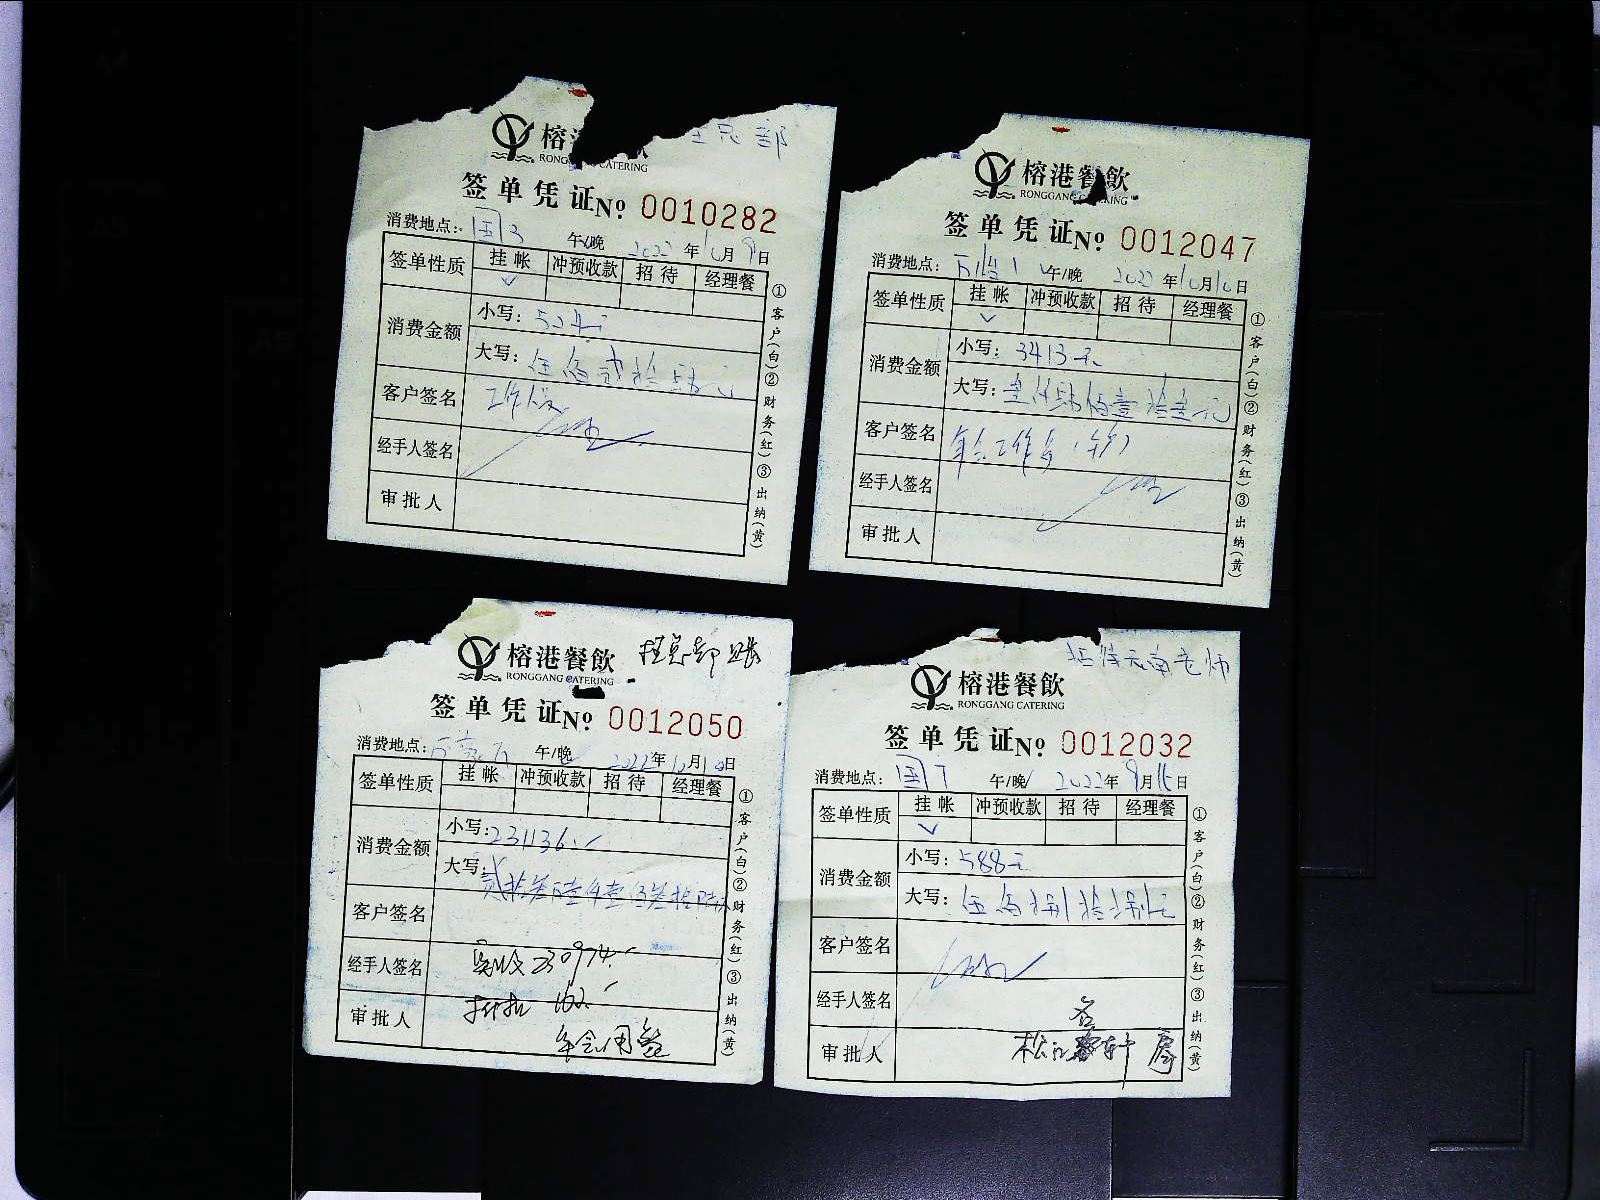 榕港
RONGGANG CATERING
签单凭证 № 0010282
消费地点: 国3 午/晚 2022年10月9日
签单性质 挂帐 冲预收款 招待 经理餐
消费金额 小写: 524元
大写: 伍佰贰拾肆元
客户签名
经手人签名
审批人
①客户(白)②财务(红)③出纳(黄)
榕港餐飲
RONGGANG CATERING
签单凭证 № 0012047
消费地点: 午/晚 2022年10月10日
签单性质 挂帐 冲预收款 招待 经理餐
消费金额 小写: 3413元
大写:
客户签名 年会工作餐
经手人签名
审批人
①客户(白)②财务(红)③出纳(黄)
榕港餐飲
RONGGANG CATERING
签单凭证 № 0012050
消费地点: 午/晚 2022年10月10日
签单性质 挂帐 冲预收款 招待 经理餐
消费金额 小写: 231136.
大写:
客户签名
经手人签名 实收230974.
审批人 折扣 162.
年会用餐
①客户(白)②财务(红)③出纳(黄)
招待云南老师
榕港餐飲
RONGGANG CATERING
签单凭证 № 0012032
消费地点: 国7 午/晚 2022年9月16日
签单性质 挂帐 冲预收款 招待 经理餐
消费金额 小写: 588元
大写: 伍佰捌拾捌元
客户签名
经手人签名
审批人
①客户(白)②财务(红)③出纳(黄)